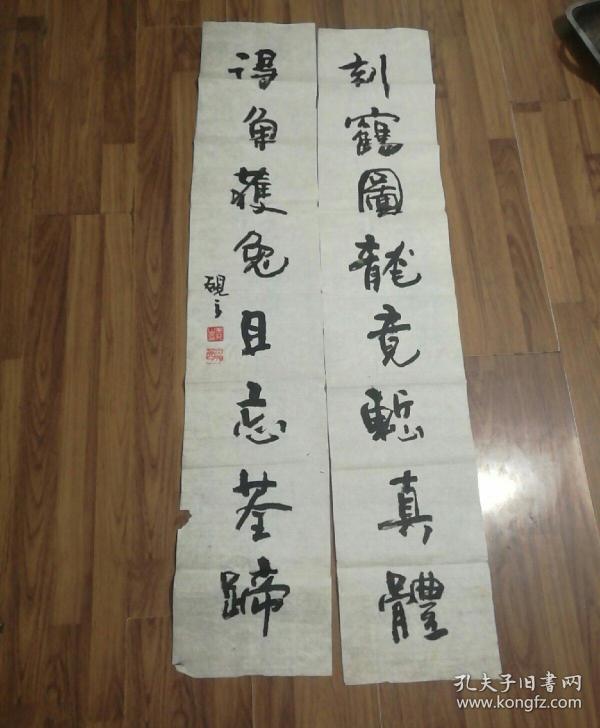 刻鶴圖龍竟慙真體
得魚獲兔且忘荃蹄
硯之
孔夫子旧书网
www.kongfz.com